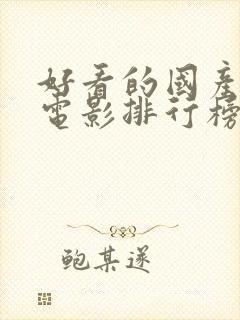 好看的國產
電影排行榜
鲍某遂